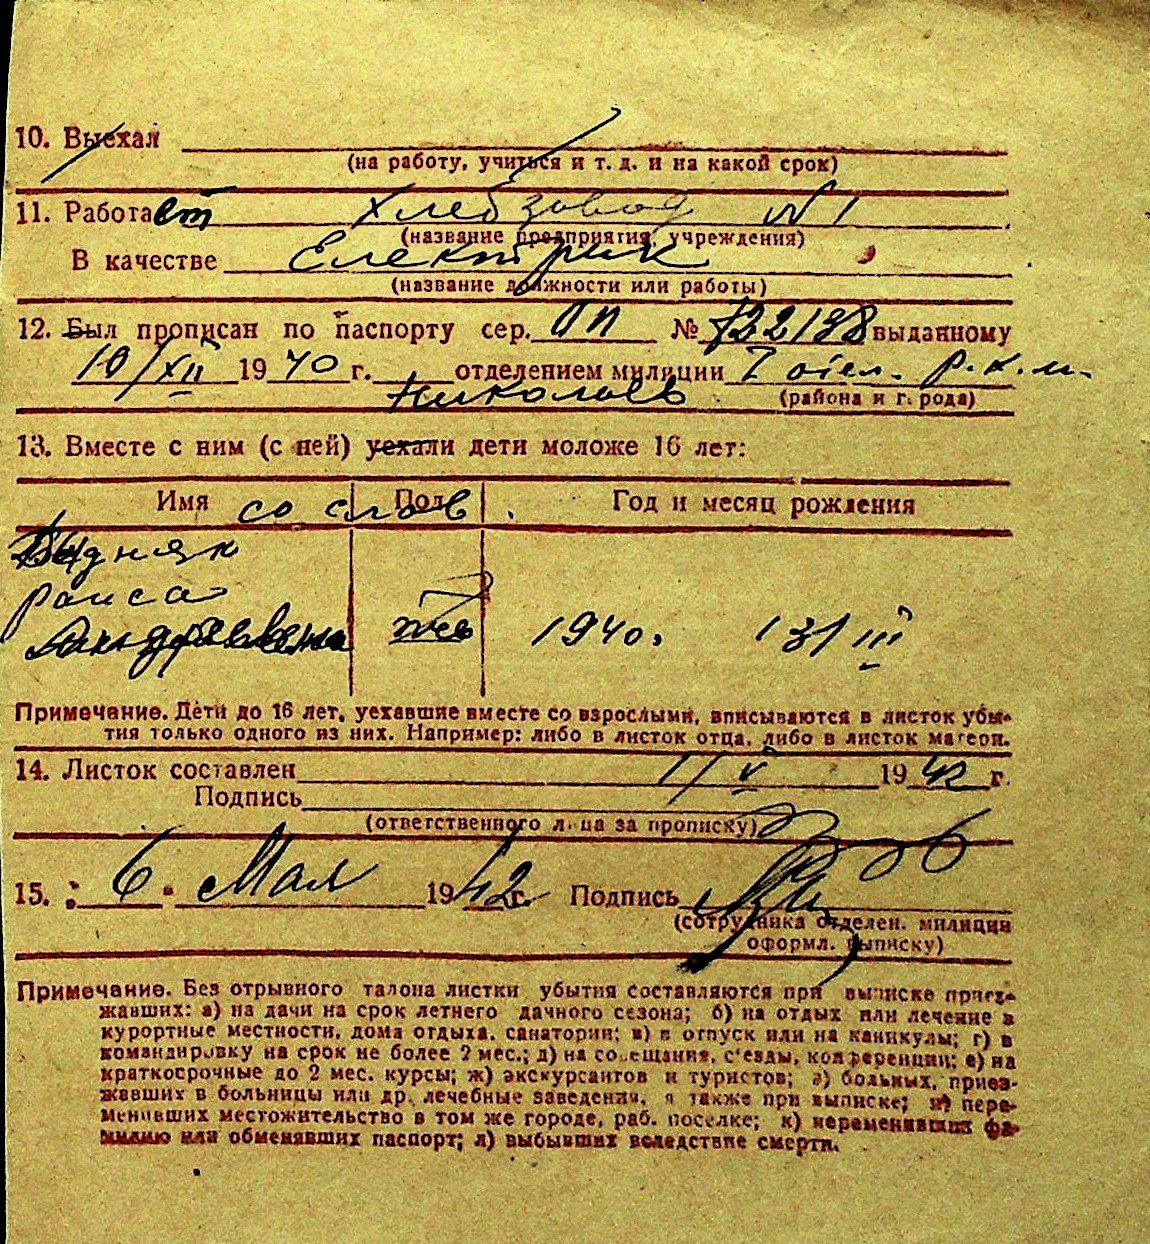 10. Выехал
(на работу, учиться и т. д. и на какой срок)
11. Работает Хлебзавод №1
(название предприятия, учреждения)
В качестве Електрик
(название должности или работы)
12. Был прописан по паспорту сер. ОП № 722188 выданному
10/XII 1940 г. отделением милиции I отел. Р.К.М.
Николаев (района и города)
13. Вместе с ним (с ней) уехали дети моложе 16 лет:
Имя Пол Год и месяц рождения
со слов
Бедняк
Раиса
Андреевена жен 1940. 13/III
Примечание. Дети до 16 лет, уехавшие вместе со взрослыми, вписываются в листок убы-
тия только одного из них. Например: либо в листок отца, либо в листок матери.
14. Листок составлен 1/V 1942 г.
Подпись
(ответственного лица за прописку)
15. „ 6 " Мая 1942 г. Подпись
(сотрудника отделен. милиции
оформл. выписку)
Примечание. Без отрывного талона листки убытия составляются при выписке приез-
жавших: а) на дачи на срок летнего дачного сезона; б) на отдых или лечение в
курортные местности, дома отдыха, санатории; в) в отпуск или на каникулы; г) в
командировку на срок не более 2 мес.; д) на совещания, с'езды, конференции; е) на
краткосрочные до 2 мес. курсы; ж) экскурсантов и туристов; з) больных, приез-
жавших в больницы или др. лечебные заведения, а также при выписке; и) пере-
менивших местожительство в том же городе, раб. поселке; к) переменивших фа-
милию или обменявших паспорт; л) выбывших вследствие смерти.